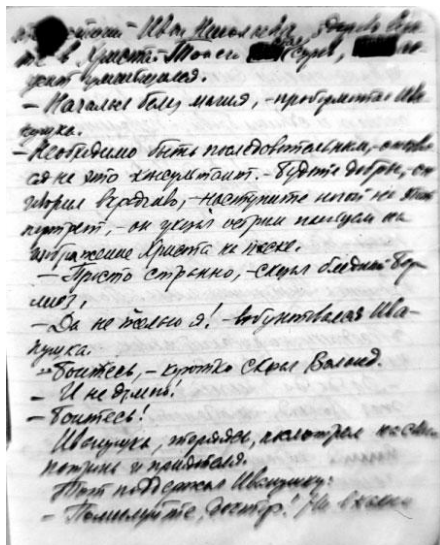 Иван Николаевич, здорово вери-
те в Христа. – Тон его стал суров,
акцент уменьшился.
– Началась белая магия, – пробормотал Ива-
нушка.
– Необходимо быть последовательным, – отозвал-
ся на это консультант. – Будьте добры, – он
говорил вкрадчиво, – наступите ногой на этот
портрет, – он указал острым пальцем на
изображение Христа на песке.
– Просто странно, – сказал бледный Бер-
лиоз.
– Да не желаю я! – взбунтовался Ива-
нушка.
– Боитесь, – коротко сказал Воланд.
– И не думаю!
– Боитесь!
Иванушка, теряясь, посмотрел на
и приятеля.
Тот поддержал Иванушку:
– Помилуйте, доктор! Ни в како